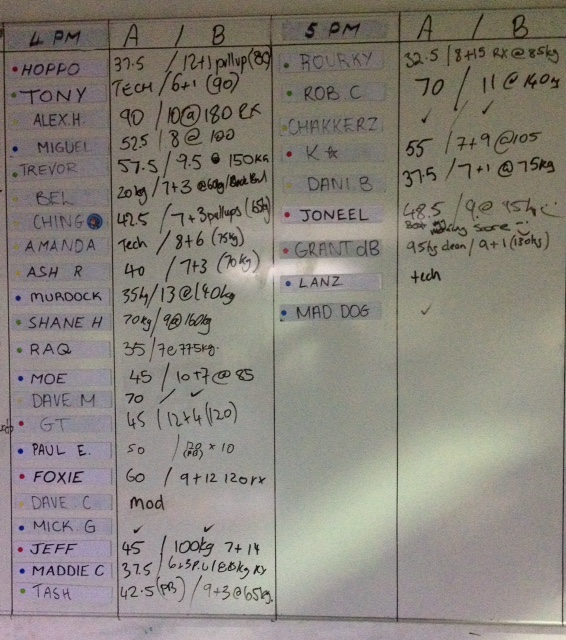 4 PM A / B
HOPPO 37.5 / 12+1 pullup (80)
TONY Tech / 6+1 (90)
ALEX.H 90 / 10@180 RX
MIGUEL 52.5 / 8@100
TREVOR 57.5 / 9.5 @ 150KG
BEL 20kg / 7+3 @60kg/
CHING 42.5 / 7+3 pullups (65kg)
AMANDA Tech / 8+6 (75kg)
ASH R 40 / 7+3 (70kg)
MURDOCK 35kg / 13@140kg
SHANE H 70kg / 9@160kg
RAQ 35 / 7@77.5kg.
MOE 45 / 10+7 @ 85
DAVE M 70 / ✓
GT 45 / 12+4 (120)
PAUL E. 50 / x 10
FOXIE 60 / 9+12 120rx
DAVE C mod
MICK. G ✓ ✓
JEFF 45 / 100kg 7+14
MADDIE C 37.5 / RX
TASH 42.5 (PB) / 9+3@65kg.
5 PM A / B
ROURKY 32.5 / 8+15 RX @85kg
ROB C 70 / 11@140kg
CHAKKERZ ✓ ✓
K☆ 55 / 7+9 @105
DANI.B 37.5 / 7+1 @ 75kg
JONEEL 48.5 / 9@
sore
GRANT dB 95kg clean / 9+1 (130kg)
LANZ tech
MAD DOG ✓